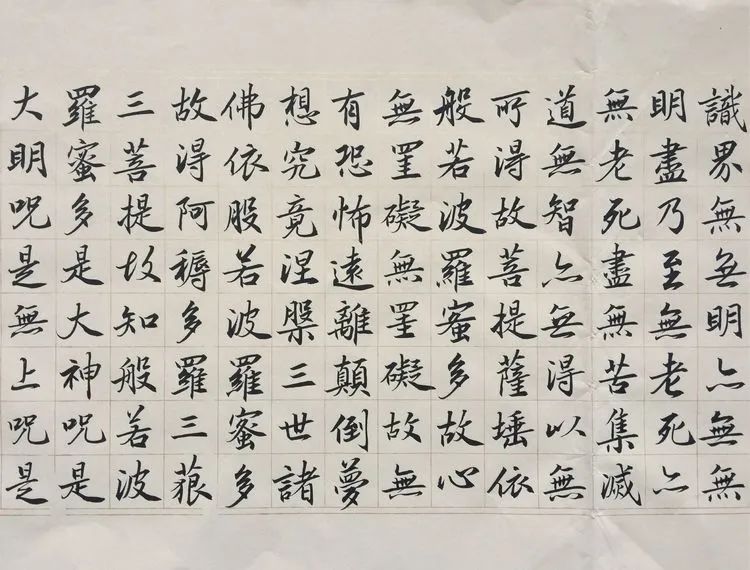 識界無無明亦無無
明盡乃至無老死亦
無老死盡無苦集滅
道無智亦無得以無
所得故菩提薩埵依
般若波羅蜜多故心
無罣礙無罣礙故無
有恐怖遠離顛倒夢
想究竟涅槃三世諸
佛依般若波羅蜜多
故得阿耨多羅三藐
三菩提故知般若波
羅蜜多是大神呪是
大明呪是無上呪是